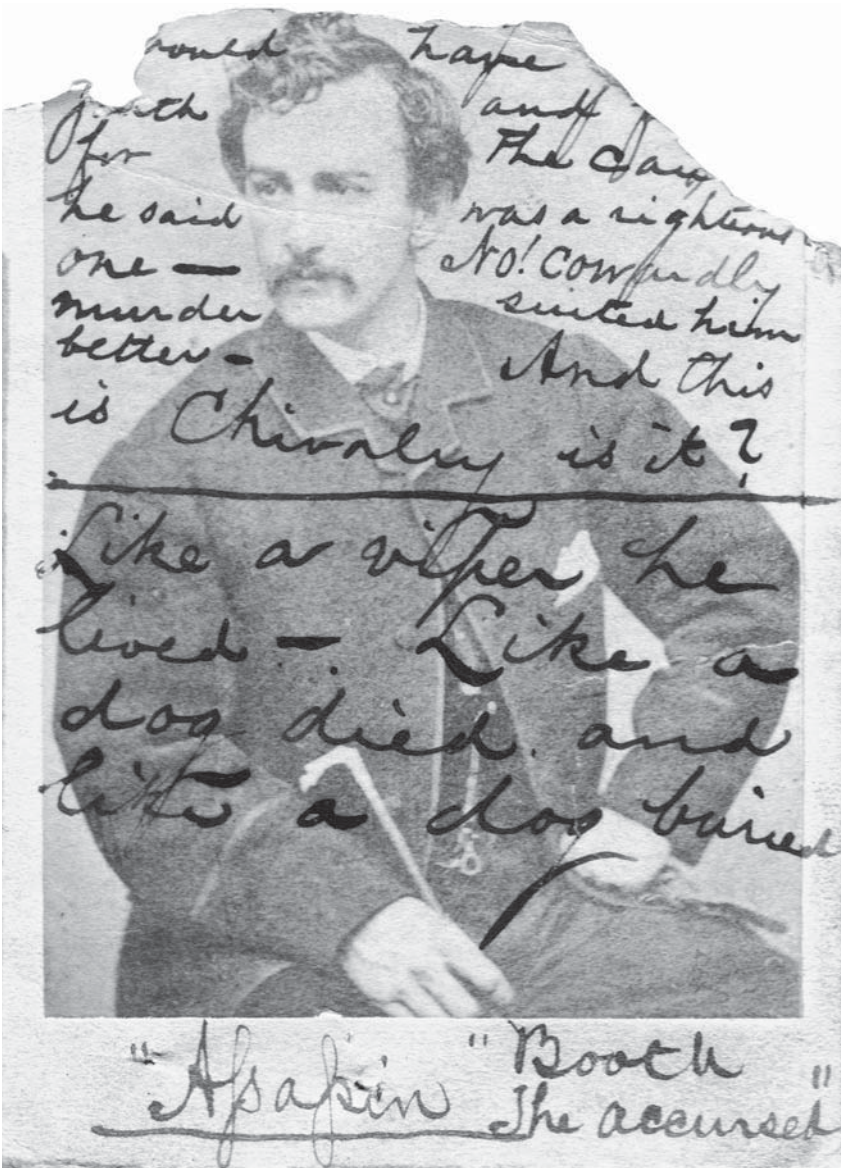 would have
forth and
for the
he said was a righteous
one — No! Cowardly
murder suited him
better — And this
is Chivalry is it?
Like a viper he
lived — Like a
dog died. and
like a dog buried
"Aſsaſsin" "Booth
The accursed"